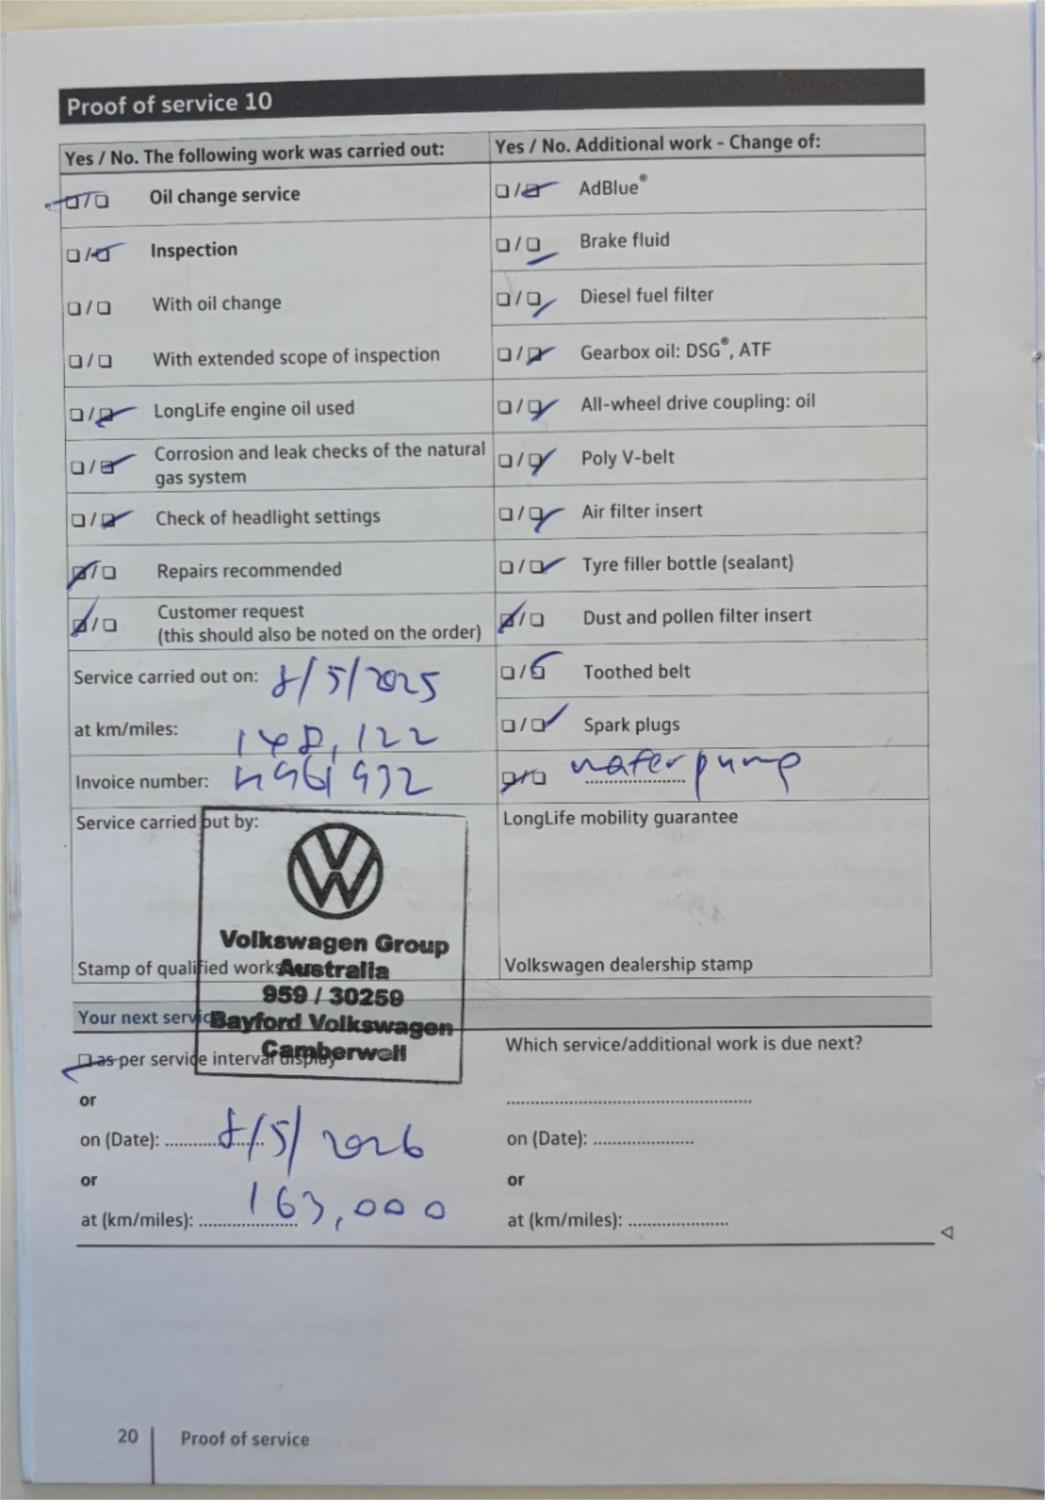 Proof of service 10
Yes / No. The following work was carried out:
Oil change service
Inspection
With oil change
With extended scope of inspection
LongLife engine oil used
Corrosion and leak checks of the natural
gas system
Check of headlight settings
Repairs recommended
Customer request
(this should also be noted on the order)
Service carried out on: 8/5/2025
at km/miles: 148,122
Invoice number:
Yes / No. Additional work - Change of:
AdBlue®
Brake fluid
Diesel fuel filter
Gearbox oil: DSG®, ATF
All-wheel drive coupling: oil
Poly V-belt
Air filter insert
Tyre filler bottle (sealant)
Dust and pollen filter insert
Toothed belt
Spark plugs
water pump
Service carried out by:
Volkswagen Group
Australia
959 / 30259
Bayford Volkswagen
Camberwell
Stamp of qualified
LongLife mobility guarantee
Volkswagen dealership stamp
Your next service
as per service interval display
or
on (Date): 8/5/2026
or
at (km/miles): 163,000
Which service/additional work is due next?
on (Date):
or
at (km/miles):
20
Proof of service